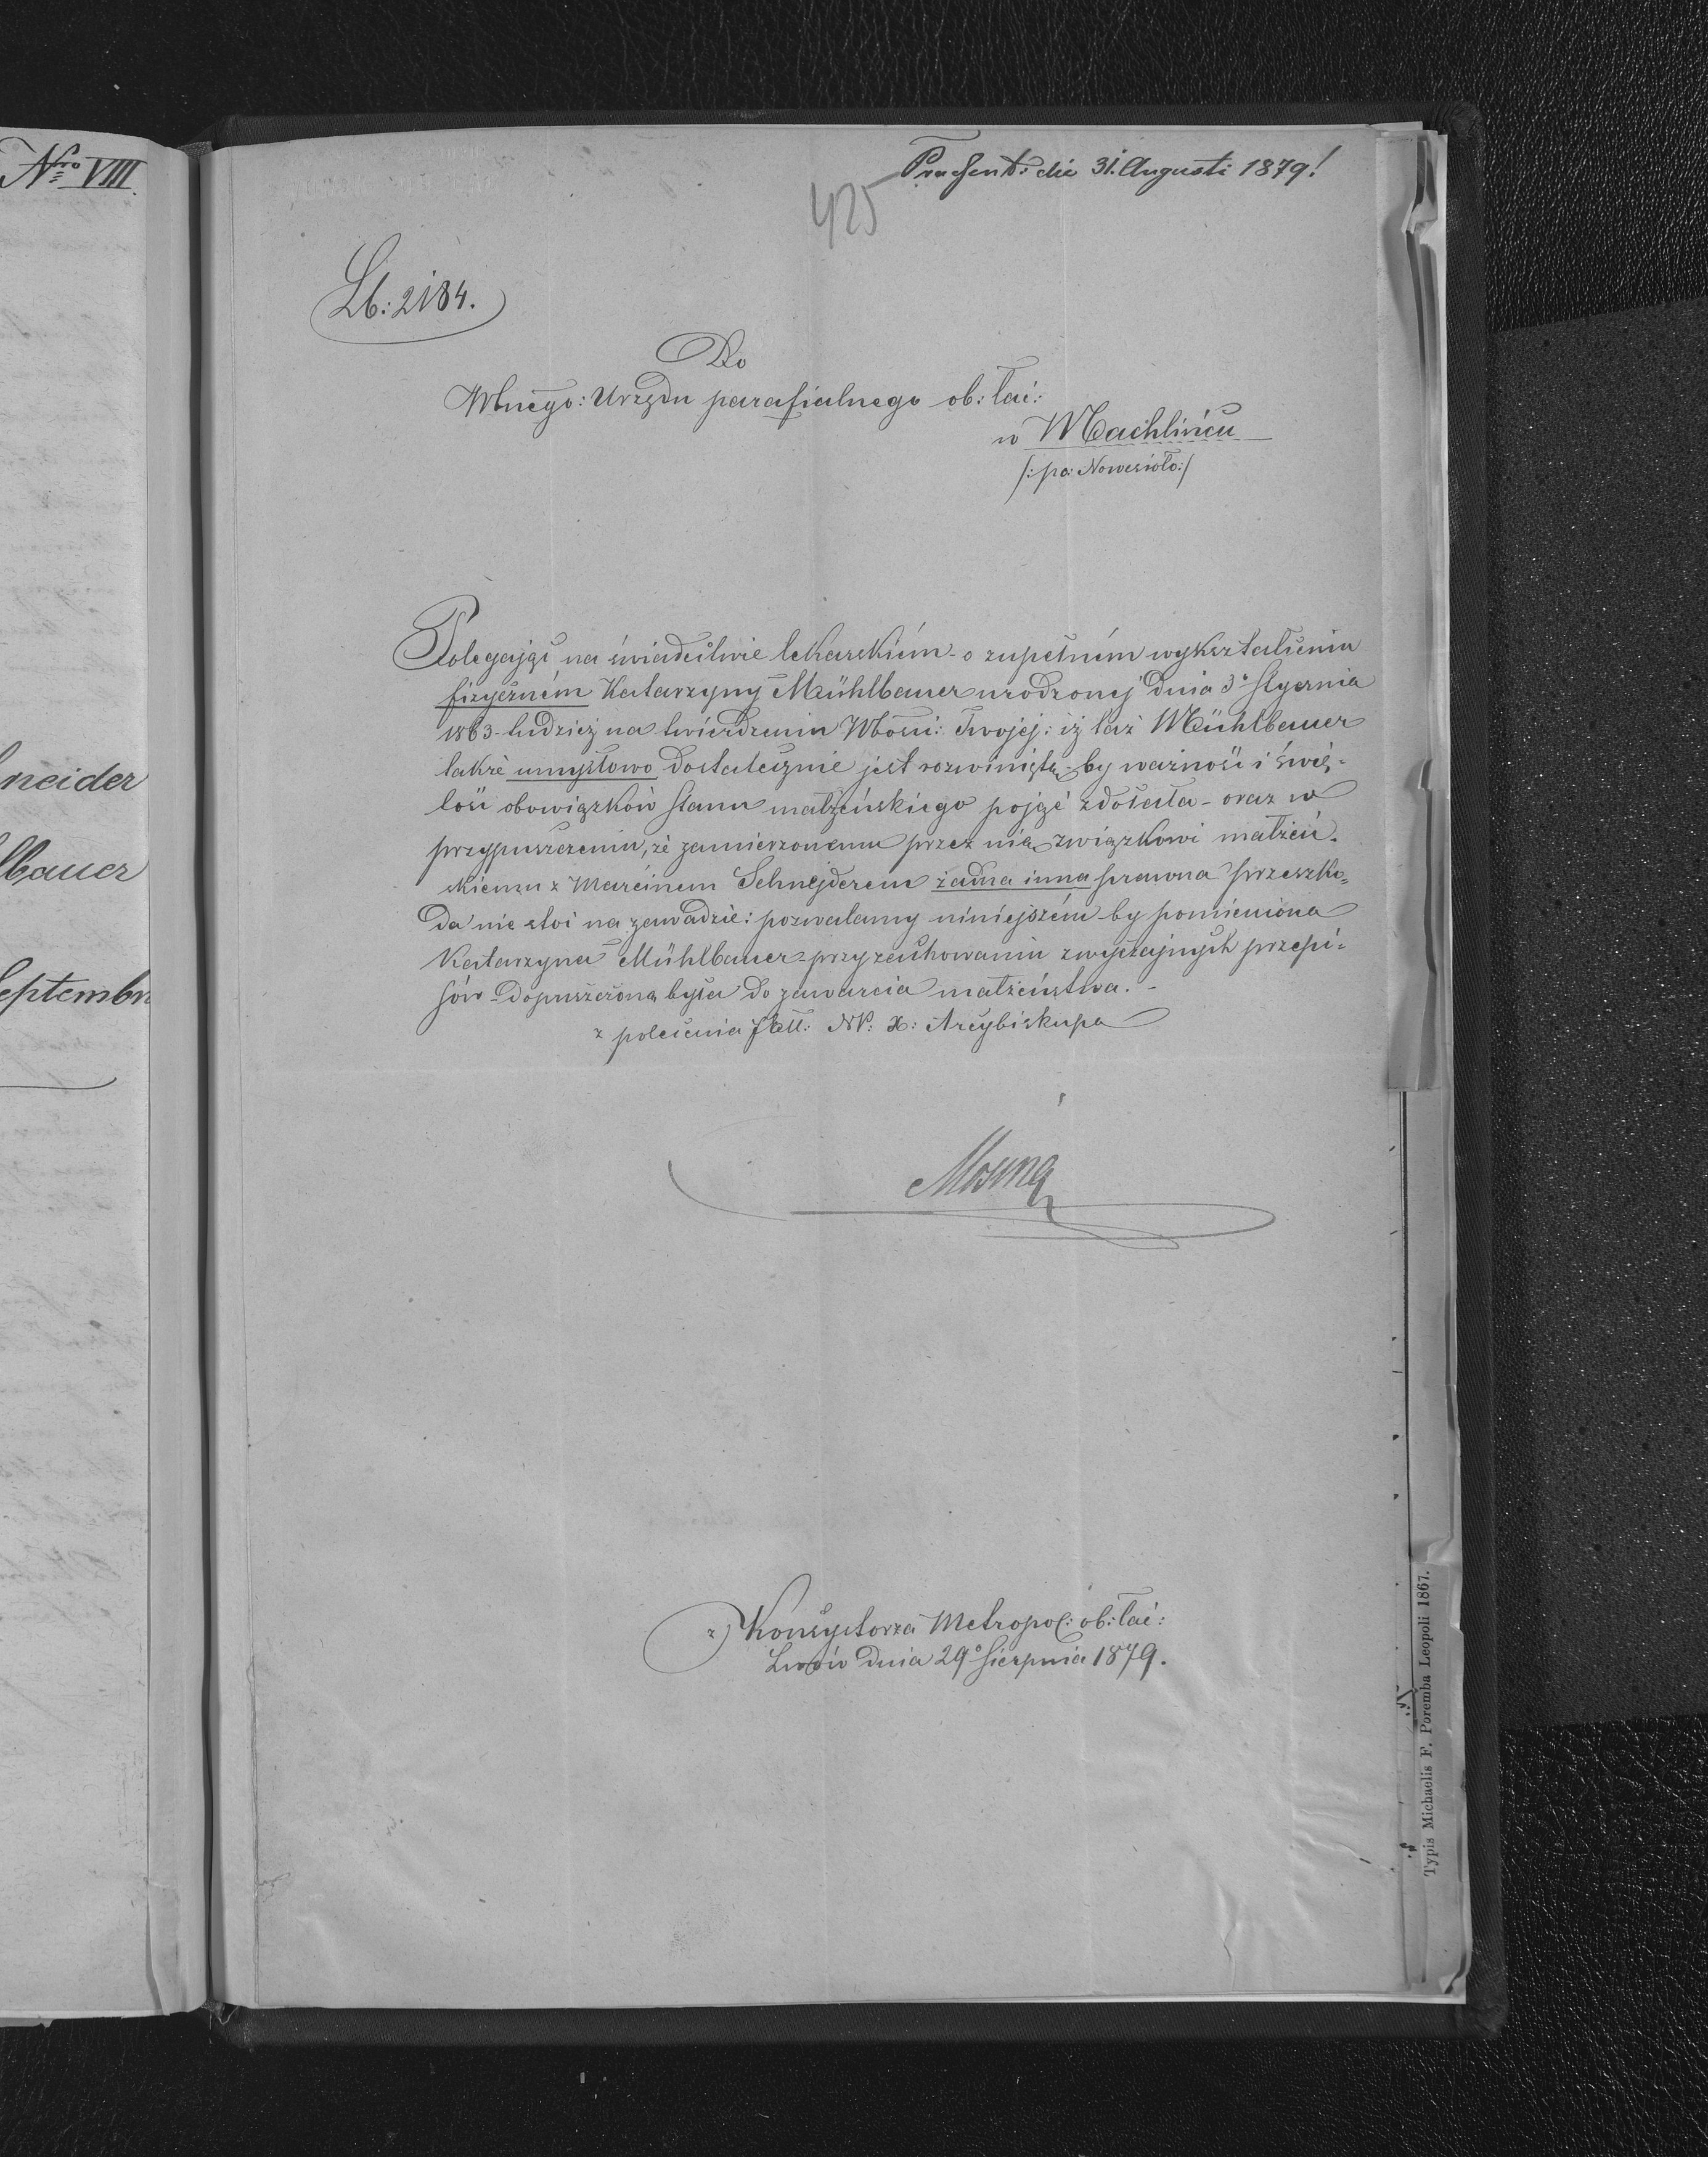 Nro VIII.
Praesent: die 31. Augusti 1879!
425
Lb: 2184.
Do
Wbnego: Urzędu parafialnego ob: łać:
w Machlińcu
/: po: Nowesioło :/
Polegając na świadectwie lekarskiém - o zupełném wykształceniu
fizyczném Katarzyny Mühlbauer urodzonej dnia 3o Stycznia
1863 - tudzież na twierdzeniu Wbości: Twojej: iż taż Mühlbauer
także umysłowo dostatecznie jest rozwiniętą - by ważność i świę-
tość obowiązków stanu małżeńskiego pojąć zdołała - oraz w
przypuszczeniu, że zamierzonemu przez nią związkowi małżeń-
skiemu z Marcinem Schnejderem żadna inna prawna przeszko-
da nie stoi na zawadzie: pozwalamy niniejszém by pomieniona
Katarzyna Mühlbauer - przy zachowaniu zwyczajnych przepi-
sów - dopuszczoną była do zawarcia małżeństwa. -
z polecenia NP: X: Arcybiskupa
z Konsystorza Metropol: ob: łać:
Lwów dnia 29o Sierpnia 1879.
neider
lbauer
Septembr
Typis Michaelis F. Poremba Leopoli 1867.